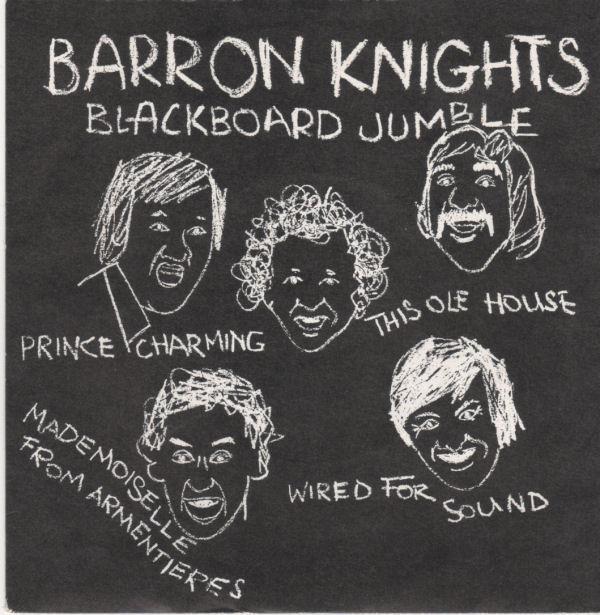 BARRON KNIGHTS
BLACKBOARD JUMBLE
PRINCE CHARMING
THIS OLE HOUSE
MADEMOISELLE
FROM ARMENTIERES
WIRED FOR
SOUND